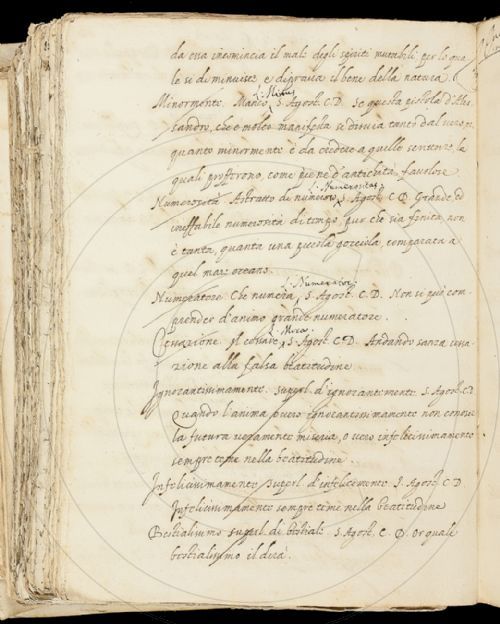 da essa incomincia il male degli spiriti mutabili, per lo qua
le si diminuisce e diprava il bene della natura.
L. Minus
Minormente. Manco, S. Agost. C. D. Se questa pistola d'Ales
sandro, che è molto manifesta si disvia tanto dal vero,
quanto minormente è da credere a quelle scritture, le
quali profferono, come piene d'antichità favolose.
L. Numerositas
Numerosità. Astratto di numero, S. Agost. C. D. Grande, ed
ineffabile numerosità di tempo, pur che sia finita non
è tanta, quanta una piccola gocciola, comparata a
quel mare oceano.
L. Numerator
Numeratore. Che numera, S. Agost. C. D. Non si può com-
prender d'animo grande numeratore.
L. Mora.
Cessazione. Il cessare, S. Agost. C. D. Andando sanza cessa-
zione alla falsa beatitudine
Ignorantissimamente. superl. d'ignorantemente. S. Agost. C. D.
Quando l'anima puote ignorantissimamente non conosce
la futura veramente miseria, o vero infelicissimamente
sempre teme nella beatitudine.
Infelicissimamente superl. d'infelicemente. S. Agost. C. D.
Infelicissimamente sempre teme nella beatitudine
Bestialissimo superl. di bestiale. S. Agost. C. D. Or quale
bestialissimo il dirà.